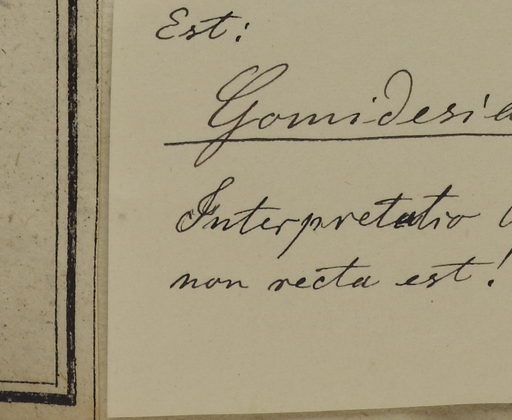 Est:
Gomidesia
Interpretatio
non recta est!